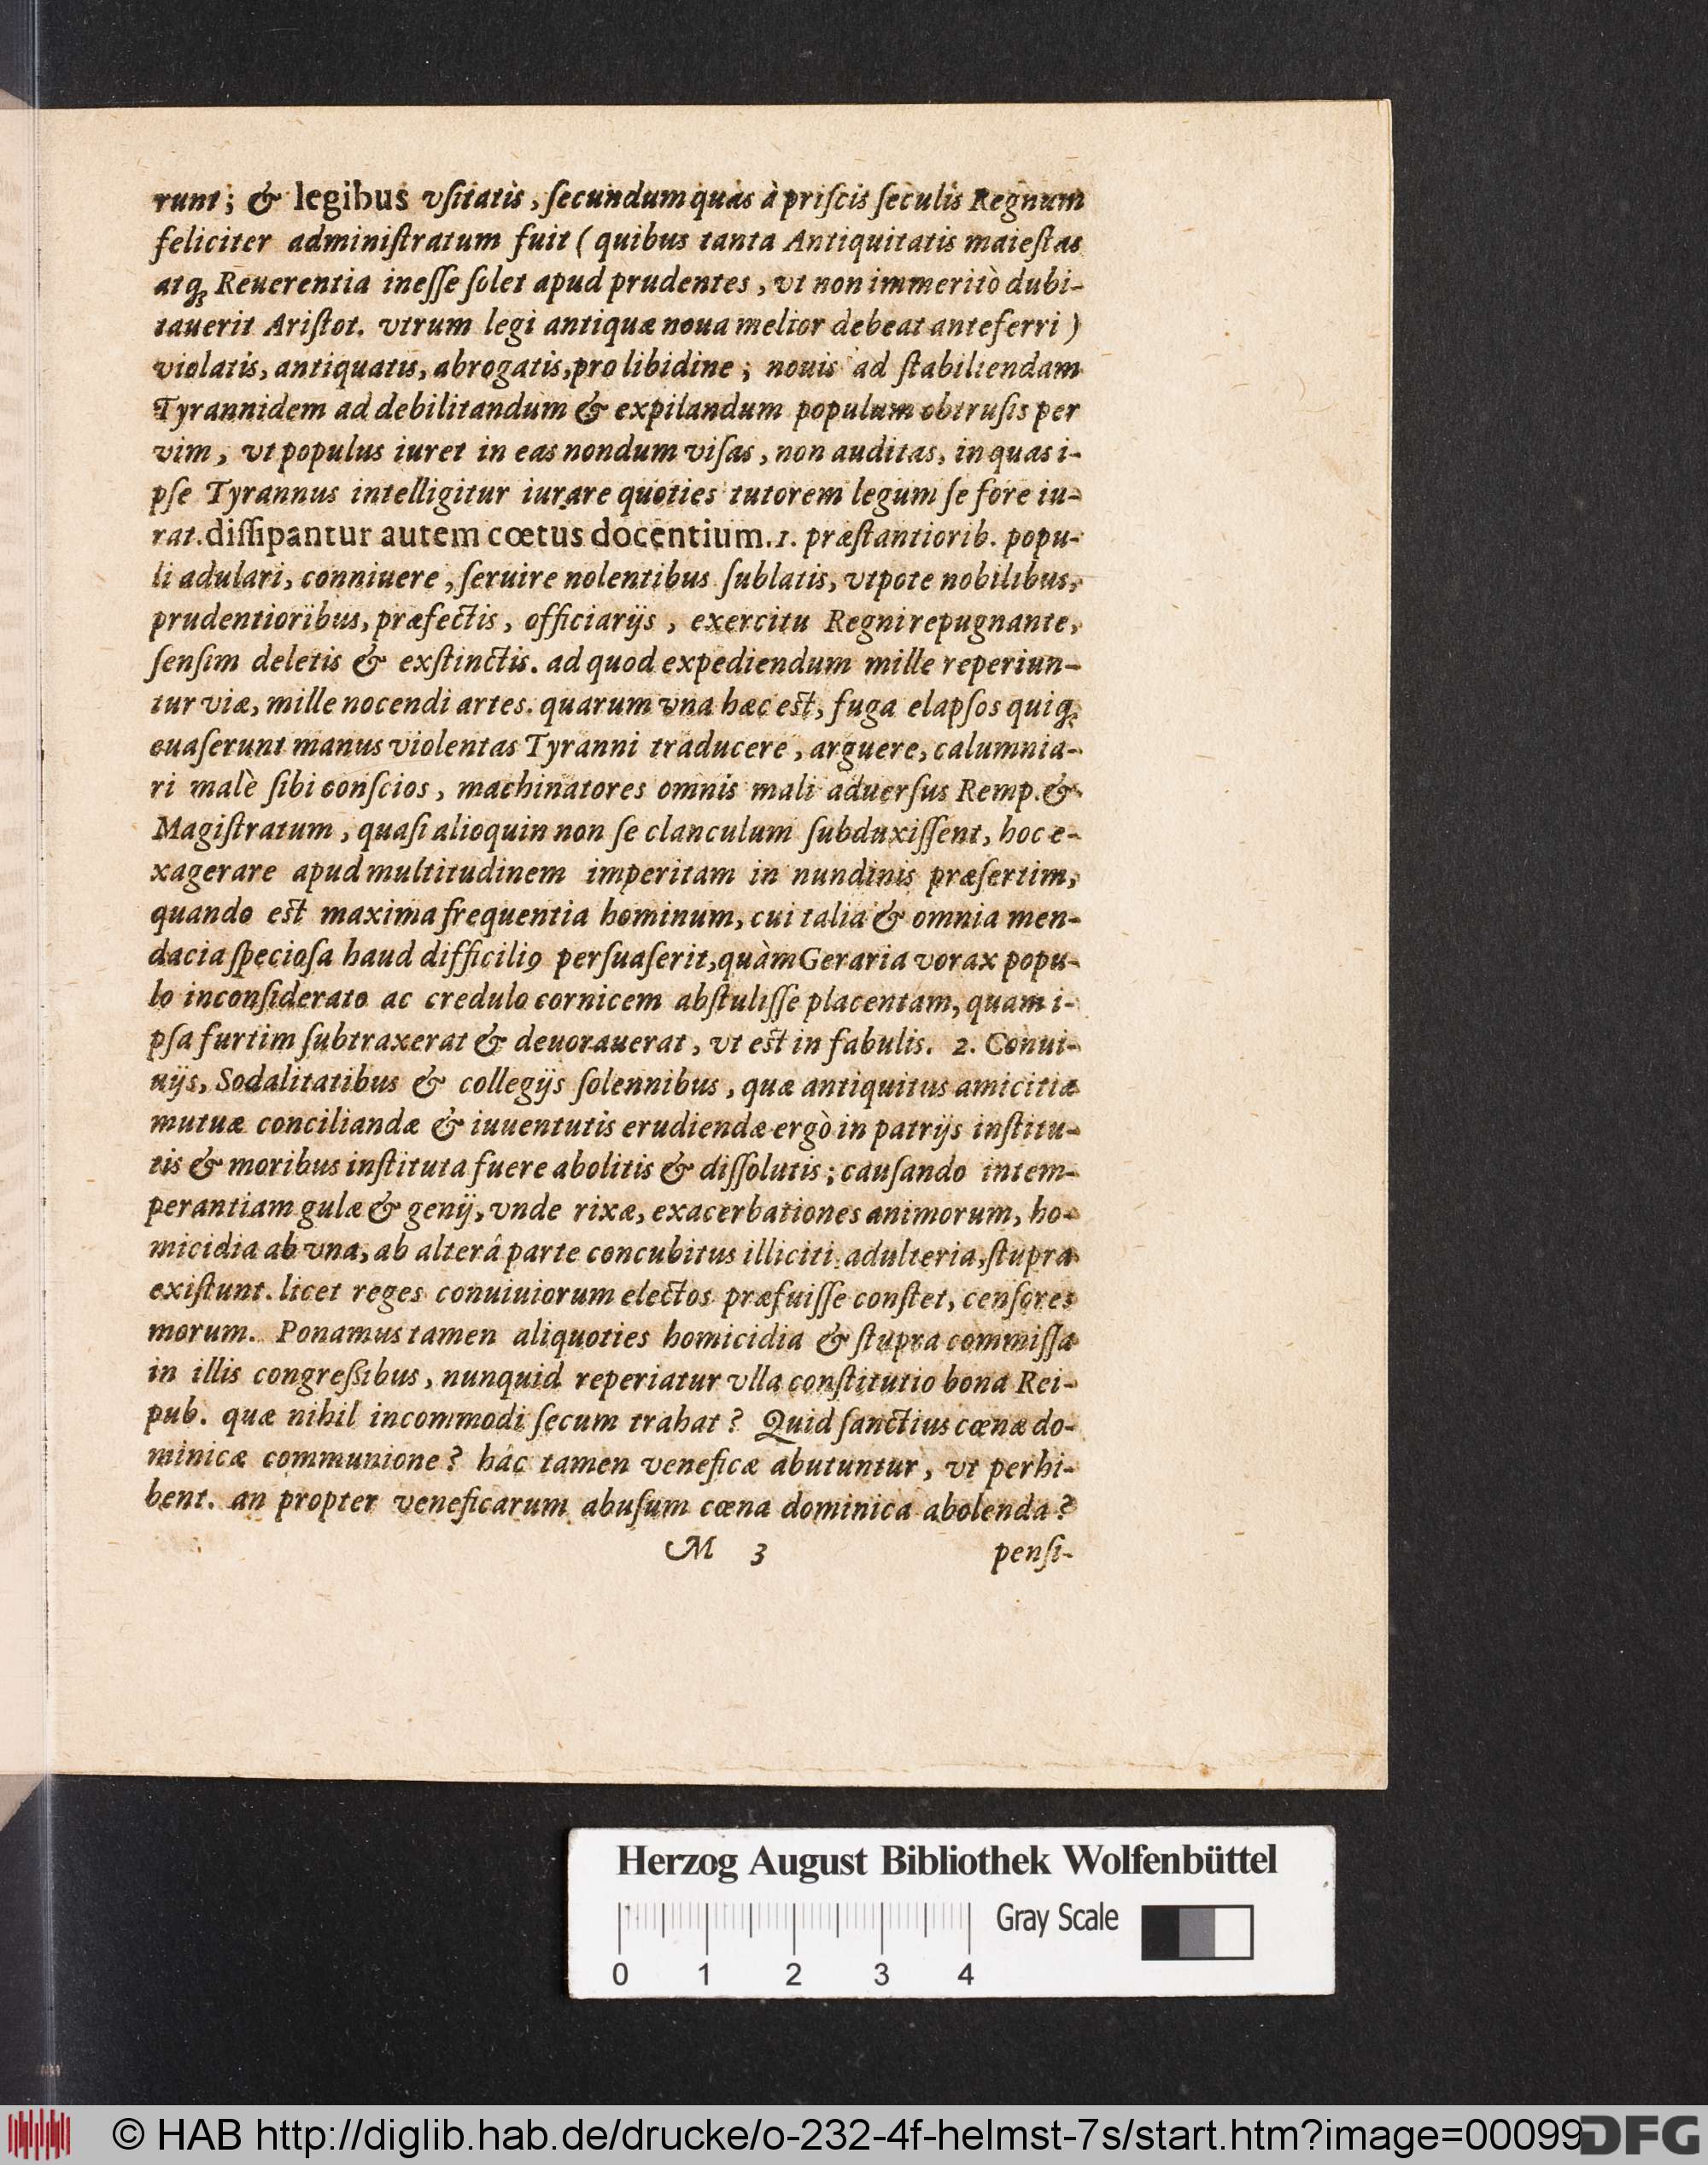 runt; & legibus vſitatis, ſecundum quas à priſcis ſeculis Regnum
feliciter adminiſtratum fuit (quibus tanta Antiquitatis maieſtas
atq; Reuerentia ineſſe ſolet apud prudentes, vt non immeritò dubi-
tauerit Ariſtot. vtrum legi antiquæ noua melior debeat anteferri)
violatis, antiquatis, abrogatis, pro libidine; nouis ad ſtabiliendam
Tyrannidem ad debilitandum & expilandum populum obtruſis per
vim, vt populus iuret in eas nondum viſas, non auditas, in quas i-
pſe Tyrannus intelligitur iurare quoties tutorem legum ſe fore iu-
rat. diſſipantur autem cœtus docentium. 1. præſtantiorib. popu-
li adulari, conniuere, ſeruire nolentibus ſublatis, vtpote nobilibus,
prudentioribus, præfectis, officiarijs, exercitu Regni repugnante,
ſenſim deletis & exſtinctis. ad quod expediendum mille reperiun-
tur viæ, mille nocendi artes. quarum vna hæc est, fuga elapſos quiq;
euaſerunt manus violentas Tyranni traducere, arguere, calumnia-
ri malè ſibi conſcios, machinatores omnis mali aduerſus Remp. &
Magiſtratum, quaſi alioquin non ſe clanculum ſubduxiſſent, hoc e-
xagerare apud multitudinem imperitam in nundinis præſertim,
quando est maxima frequentia hominum, cui talia & omnia men-
dacia ſpecioſa haud difficiliꝰ perſuaſerit, quàm Geraria vorax popu-
lo inconſiderato ac credulo cornicem abſtuliſſe placentam, quam i-
pſa furtim ſubtraxerat & deuorauerat, vt est in fabulis. 2. Conui-
uijs, Sodalitatibus & collegijs ſolennibus, quæ antiquitus amicitiæ
mutuæ conciliandæ & iuuentutis erudiendæ ergò in patrijs inſtitu-
tis & moribus inſtituta fuere abolitis & diſſolutis; cauſando intem-
perantiam gulæ & genij, vnde rixæ, exacerbationes animorum, ho-
micidia ab vna, ab alterâ parte concubitus illiciti, adulteria, ſtupra
exiſtunt. licet reges conuiuiorum electos præfuiſſe conſtet, cenſores
morum. Ponamus tamen aliquoties homicidia & ſtupra commiſſa
in illis congreſſibus, nunquid reperiatur vlla conſtitutio bona Rei-
pub. quæ nihil incommodi ſecum trahat? Quid ſanctius cœnæ do-
minicæ communione? hâc tamen veneficæ abutuntur, vt perhi-
bent. an propter veneficarum abuſum cœna dominica abolenda?
M 3 penſi-
Herzog August Bibliothek Wolfenbüttel
Gray Scale
0 1 2 3 4
© HAB http://diglib.hab.de/drucke/o-232-4f-helmst-7s/start.htm?image=00099
DFG